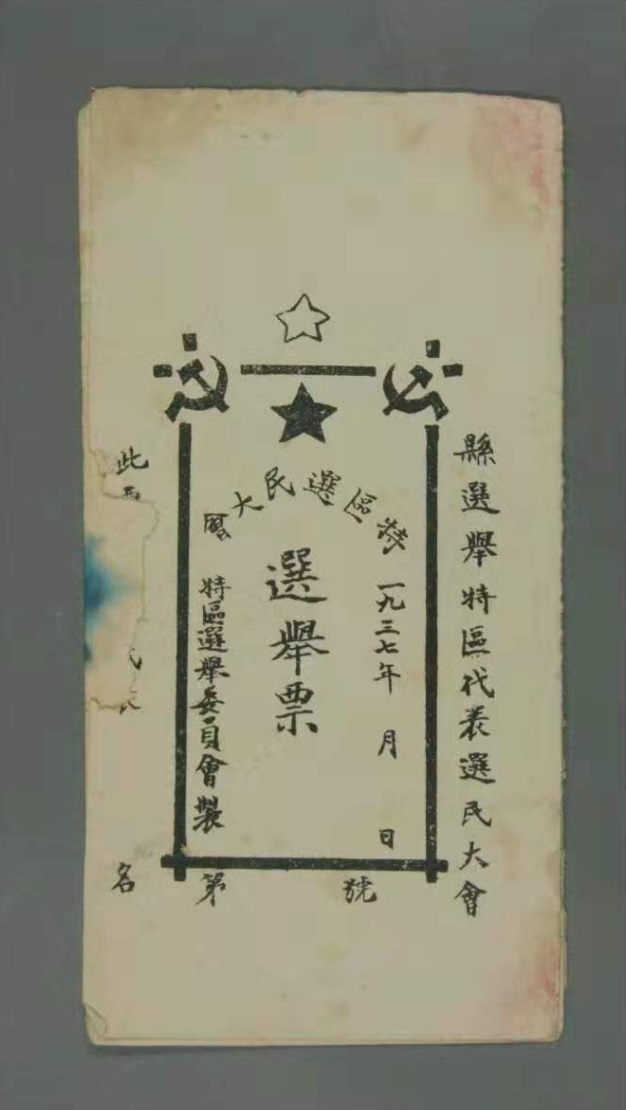 縣選舉特區代表選民大會
特區選民大會
一九三七年　月　日
選舉票
特區選舉委員會製
第　號
此
名